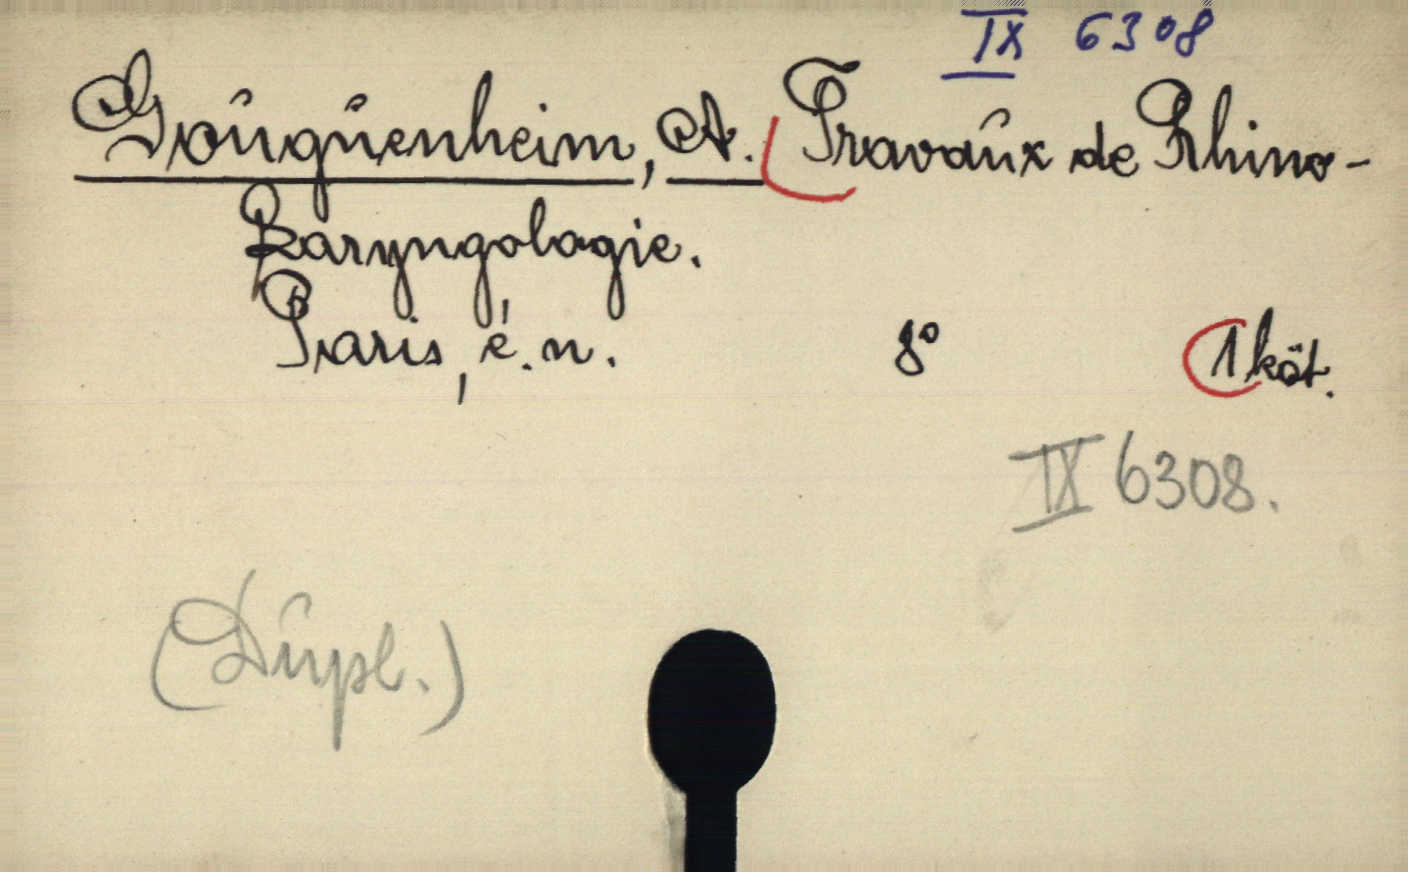 IX 6308
Gouguenheim, A. Travaux de Rhino-
Laryngologie.
Paris, é. n. 8° 1 köt.
IX 6308.
(Dupl.)